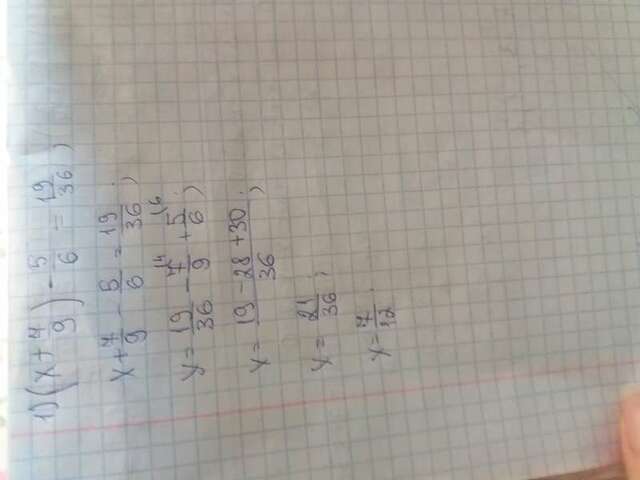 1) (x + 7/9) - 5/6 = 19/36;
x + 7/9 - 5/6 = 19/36;
x = 19/36 - 7/9 + 5/6;
x = (19 - 28 + 30)/36;
x = 21/36;
x = 7/12.